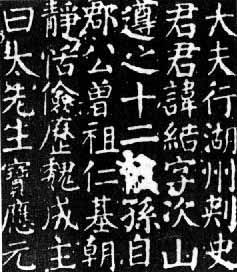 大夫行湖州刺史
君君諱結字次山
遵之十二孫自
郡公曾祖仁基朝
靜恬儉歷魏成主
曰太先生寶應元